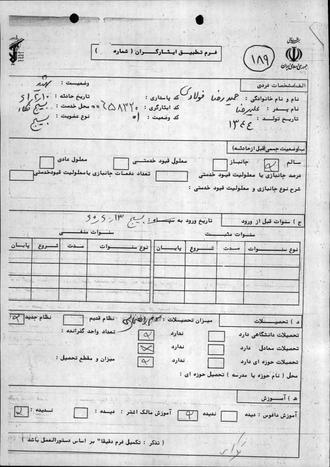 جمهوری اسلامی ایران
فرم تطبیق ایثارگران ( شماره )
۱۸۹
الف) مشخصات فردی
وضعیت :
نام و نام خانوادگی : حمیدرضا فولادی
کد پاسداری :
تاریخ حادثه :
نام پدر : علیرضا
کد ایثارگری :
محل خدمت :
تاریخ تولد : ۱۳۴۴
کد وضعیت : ۰۱
نوع عضویت : بسیج
ب) وضعیت جسمی (قبل از حادثه)
سالم
جانباز
معلول قید خدمتی
معلول عادی
درصد جانبازی یا معلولیت قیدخدمتی
تعداد دفعات جانبازی یا معلولیت قیدخدمتی
شرح نوع جانبازی و معلولیت قید خدمتی :
ج ) سنوات قبل از ورود
تاریخ ورود به
سنوات مثبت
سنوات منفی
نوع سنوات
مدت
شروع
پایان
نوع سنوات
مدت
شروع
پایان
د ) تحصیلات
میزان تحصیلات :
نظام قدیم
نظام جدید
تحصیلات دانشگاهی دارد
ندارد
تعداد واحد گذرانده :
تحصیلات معادل دارد
ندارد
تحصیلات حوزه ای دارد
ندارد
میزان و مقطع تحصیل :
محل ( نام حوزه یا مدرسه ) تحصیل حوزه ای :
هـ ) آموزش
آموزش دافوس : دیده
ندیده
آموزش مالک اشتر : دیده :
ندیده :
( تذکر : تکمیل فرم دقیقا" بر اساس دستورالعمل باشد )